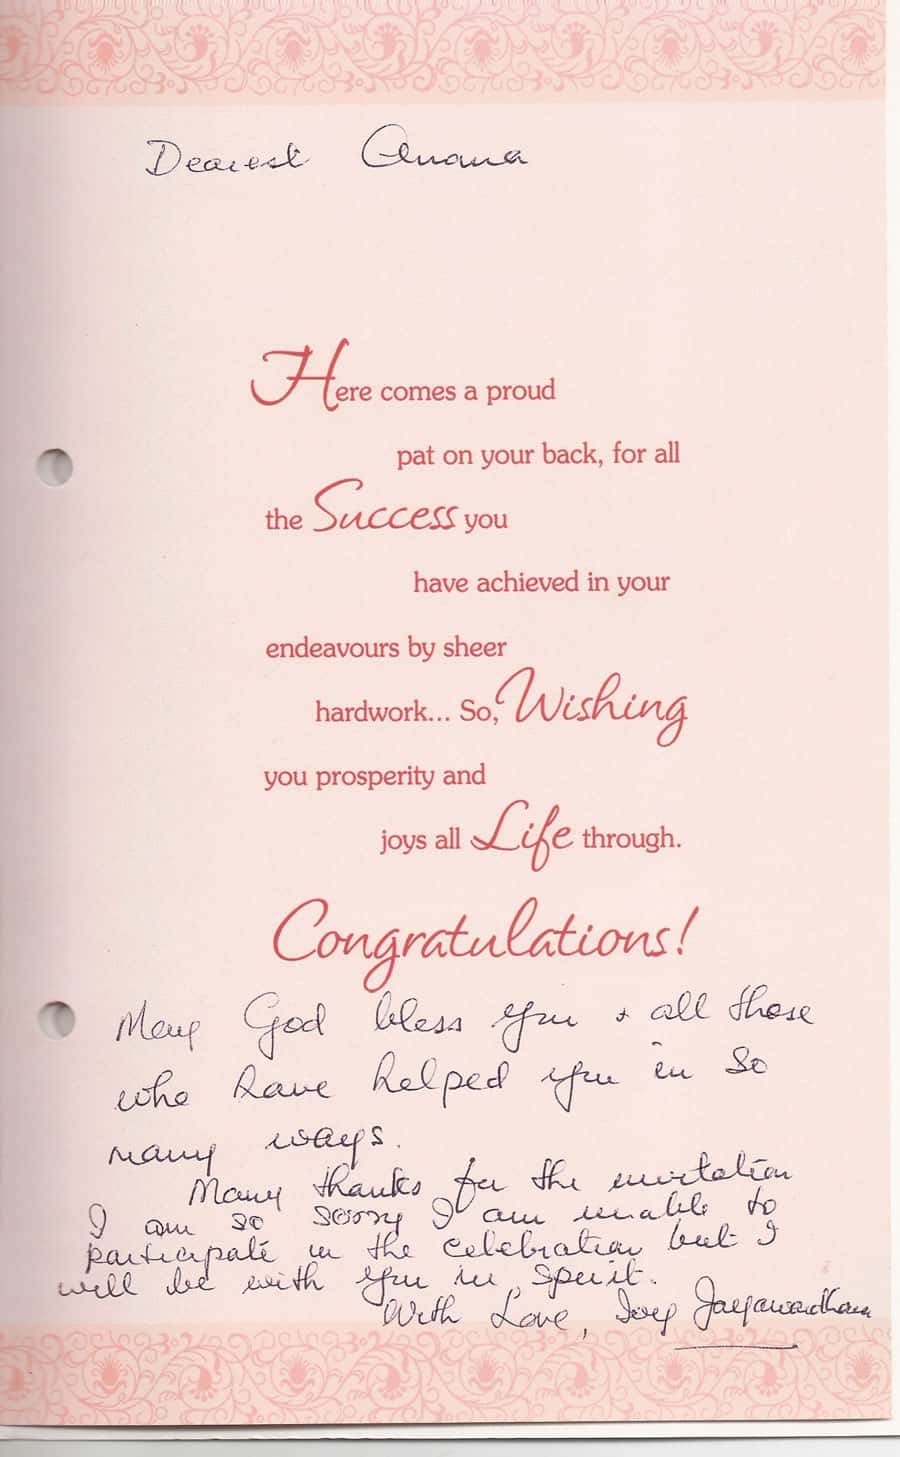 Dearest
Here comes a proud
pat on your back, for all
the Success you
have achieved in your
endeavours by sheer
hardwork... So, Wishing
you prosperity and
joys all Life through.
Congratulations!
May God bless you + all those
who have helped you in so
many ways.
Many thanks for the invitation
I am so sorry I am unable to
participate in the celebration but I
will be with you in spirit.
With Love, Joy Jayawardhana